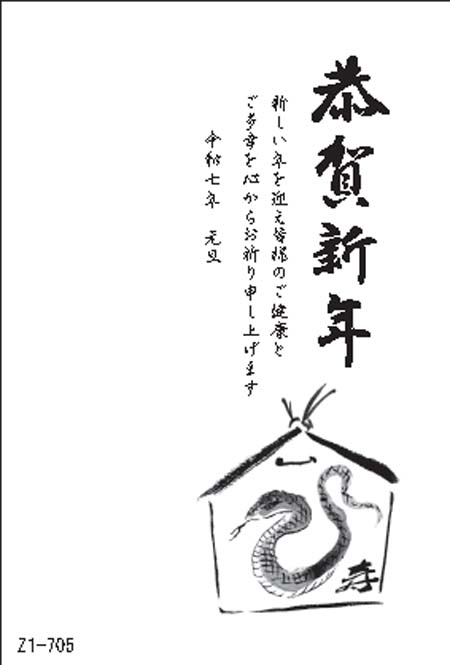 恭賀新年
新しい年を迎え皆様のご健康と
ご多幸を心からお祈り申し上げます
令和七年 元旦
寿
Z1-705